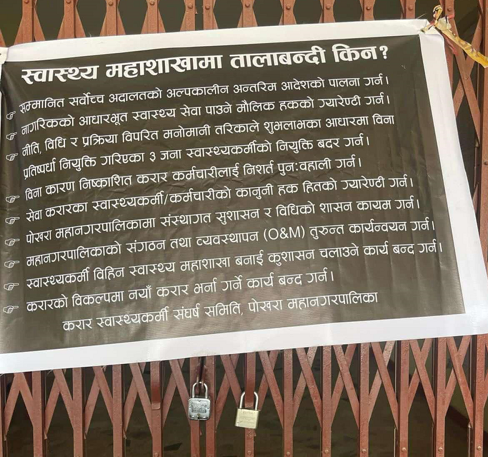 स्वास्थ्य महाशाखामा तालाबन्दी किन?
सम्मानित सर्वोच्च अदालतको अल्पकालीन अन्तरिम आदेशको पालना गर्न।
नागरिकको आधारभूत स्वास्थ्य सेवा पाउने मौलिक हकको ग्यारेण्टी गर्न।
नीति, विधि र प्रक्रिया विपरित मनोमानी तरिकाले शुभलाभका आधारमा विना
प्रतिष्पर्धा नियुक्ति गरिएका ३ जना स्वास्थ्यकर्मीको नियुक्ति बदर गर्न।
विना कारण निष्काशित करार कर्मचारीलाई निशर्त पुन:वहाली गर्न।
सेवा करारका स्वास्थ्यकर्मी/कर्मचारीको कानुनी हक हितको ग्यारेण्टी गर्न।
पोखरा महानगरपालिकामा संस्थागत सुशासन र विधिको शासन कायम गर्न।
महानगरपालिकाको संगठन तथा व्यवस्थापन (O&M) तुरुन्त कार्यन्वयन गर्न।
स्वास्थ्यकर्मी विहिन स्वास्थ्य महाशाखा बनाई कुशासन चलाउने कार्य बन्द गर्न।
करारको विकल्पमा नयाँ करार भर्ना गर्ने कार्य बन्द गर्न।
करार स्वास्थ्यकर्मी संघर्ष समिति, पोखरा महानगरपालिका